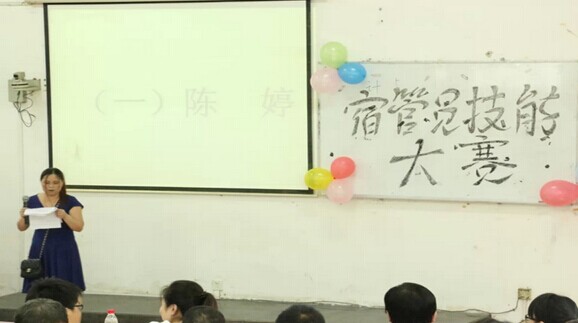 （一）陈 婷
宿管员技能
大赛